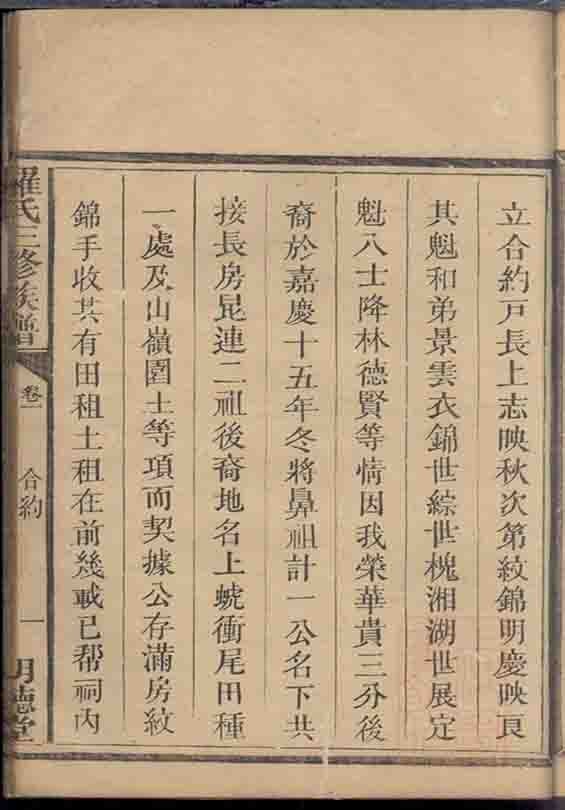 立合約戸長上志映秋次第紋錦明慶映艮
其魁和弟景雲衣錦世綜世槐湘湖世展定
魁八士降林德賢等情因我榮華貴三分後
裔於嘉慶十五年冬將鼻祖計一公名下共
接長房昆連二祖後裔地名上虢衝尾田種
一處及山嶺園土等項而契據公存滿房紋
錦手收其有田租土租在前幾載已帮祠內
羅氏三修族譜
卷一
合約
一
明德堂